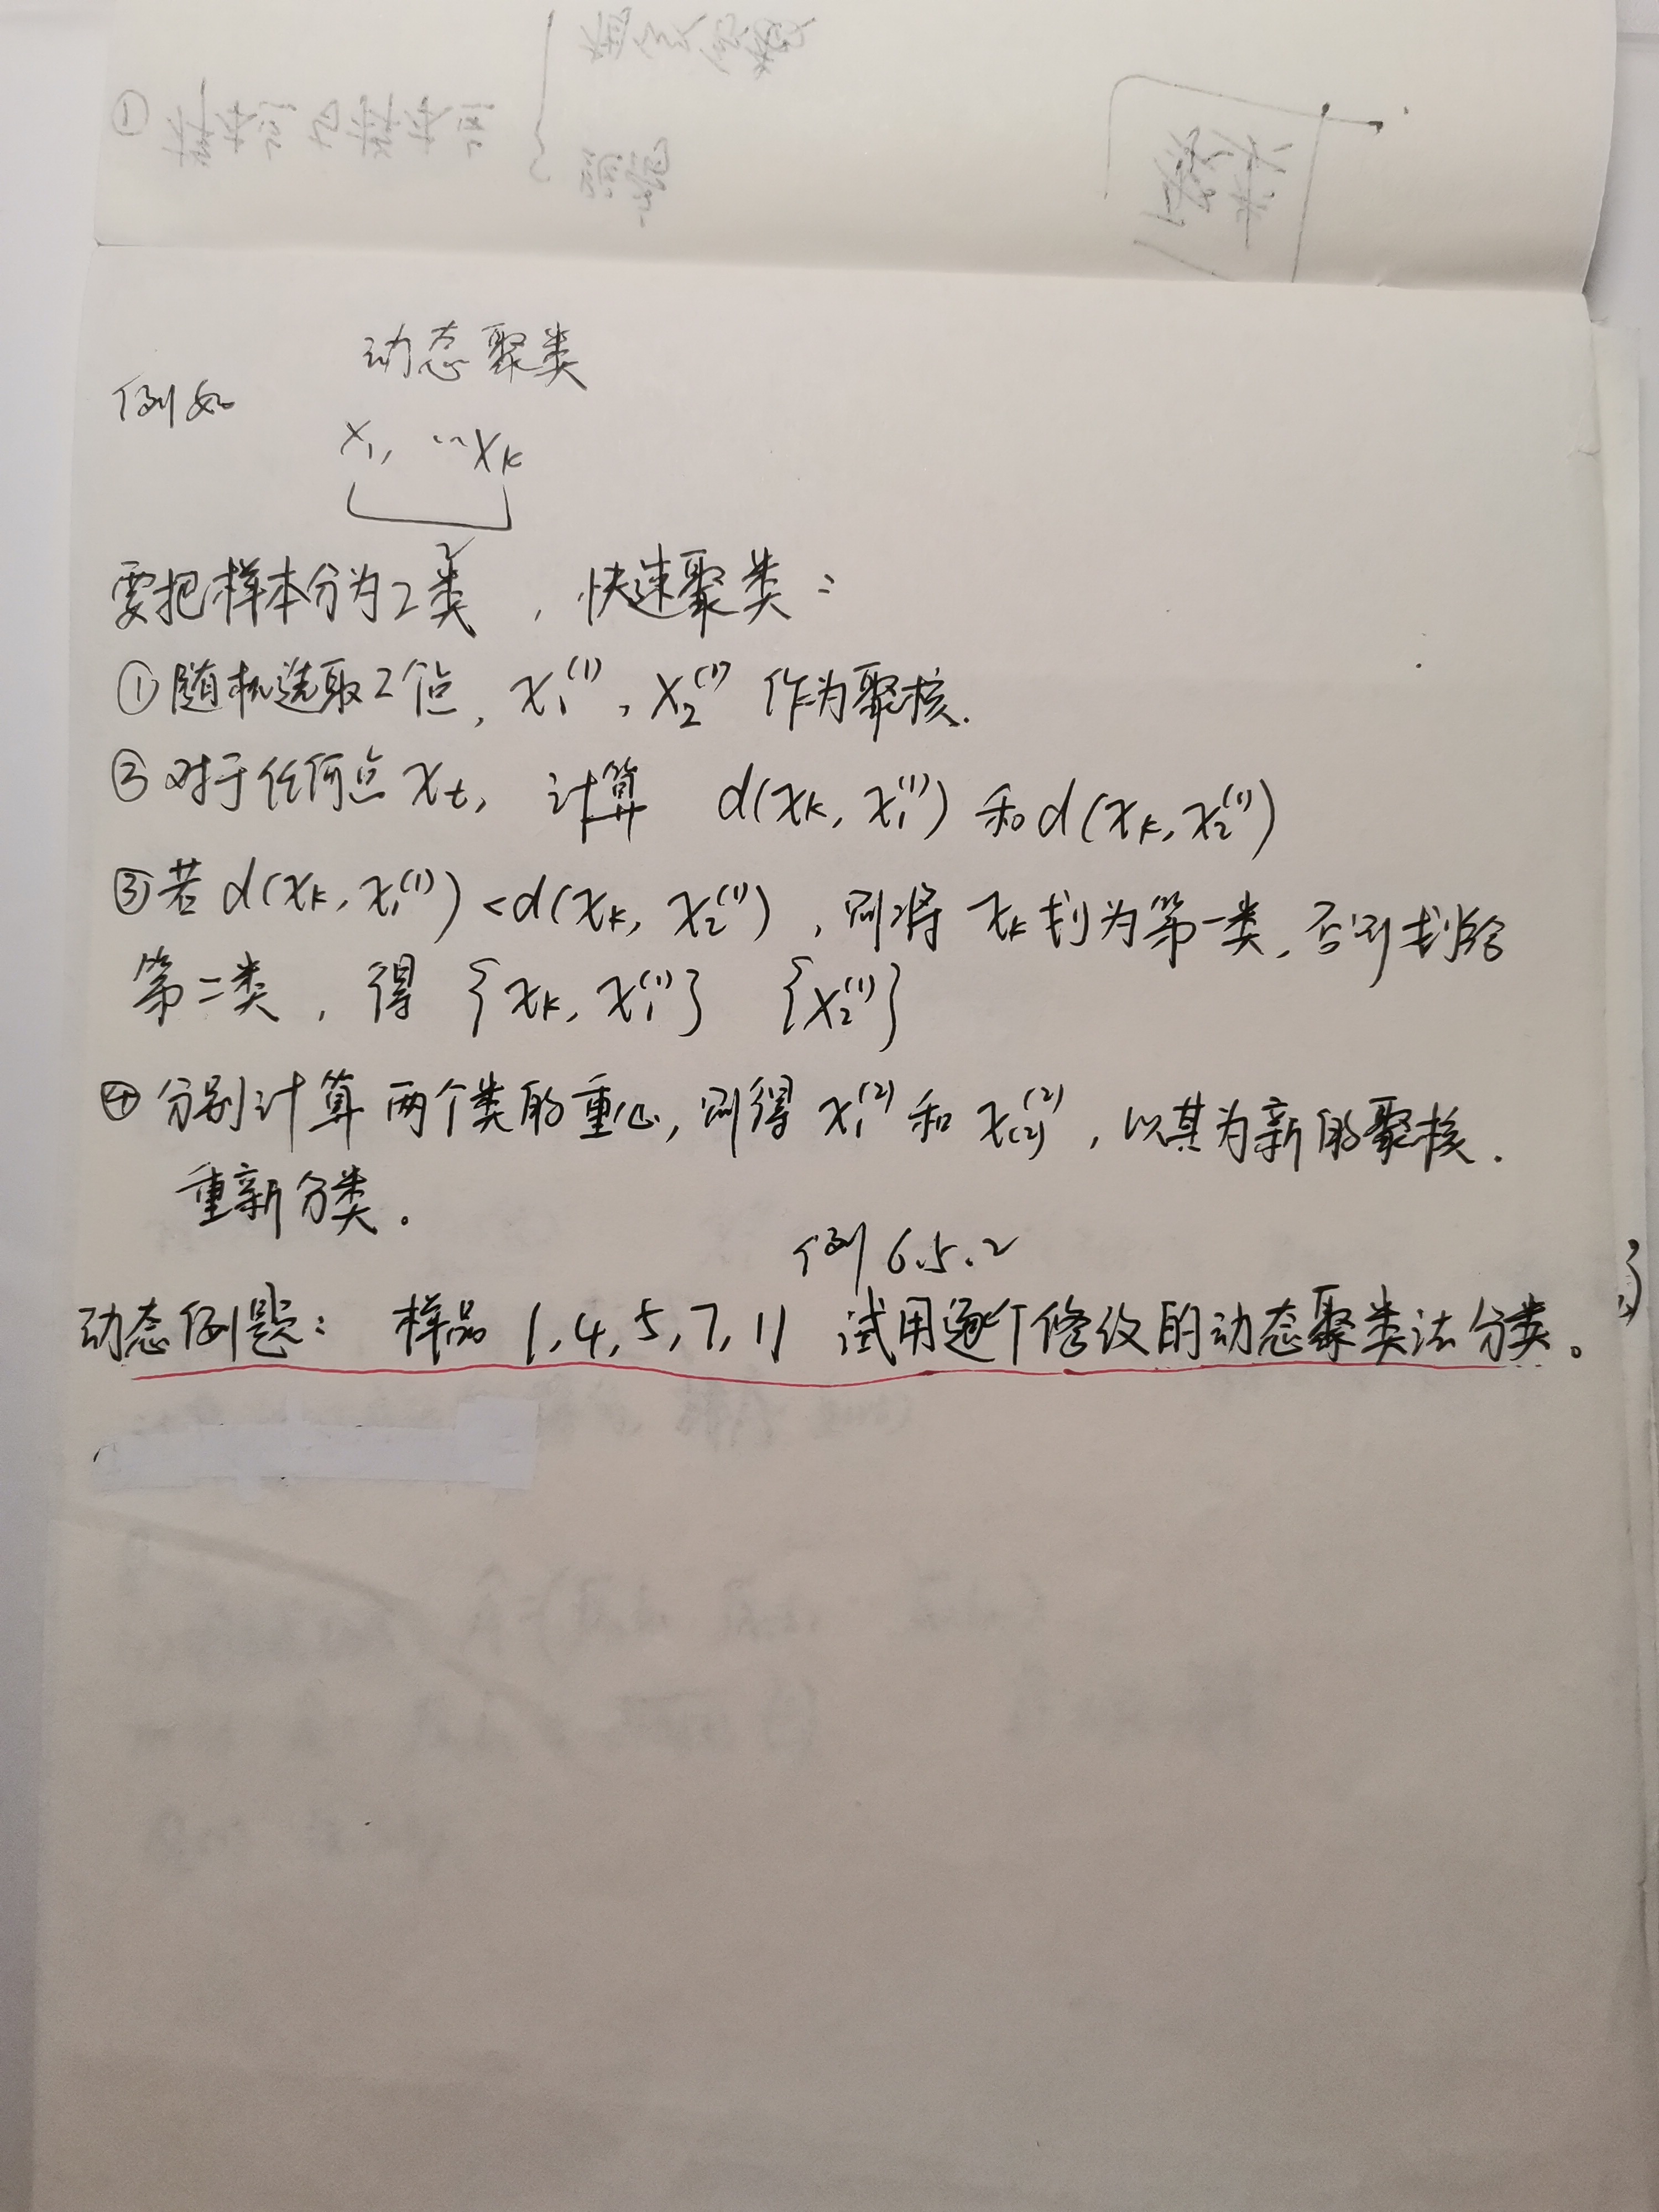 动态聚类
例如
x₁, …xₖ
要把样本分为2类，快速聚类：
①随机选取2个点, x₁⁽¹⁾, x₂⁽¹⁾ 作为聚核.
②对于任何点xₜ, 计算 d(xₖ, x₁⁽¹⁾) 和 d(xₖ, x₂⁽¹⁾)
③若 d(xₖ, x₁⁽¹⁾) < d(xₖ, x₂⁽¹⁾), 则将 xₖ 划为第一类, 否则划给
第二类, 得 {xₖ, x₁⁽¹⁾} {x₂⁽¹⁾}
④分别计算两个类的重心, 则得 x₁⁽²⁾ 和 x₍₂₎⁽²⁾, 以其为新的聚核.
重新分类。
例 6.5.2
动态例题： 样品 1,4,5,7,11 试用逐个修改的动态聚类法分类。